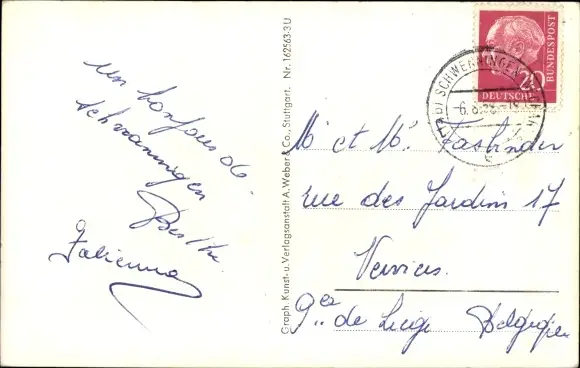 un bonjour de
Schwenningen
Berthe
Fabienne
Graph. Kunst- u. Verlagsanstalt A. Weber & Co., Stuttgart. Nr. 162563-3U
DEUTSCHE BUNDESPOST
20
SCHWENNINGEN
Mr et Me Fasbinder
rue des Jardins 17
Verviers.
Pce de Liège Belgique